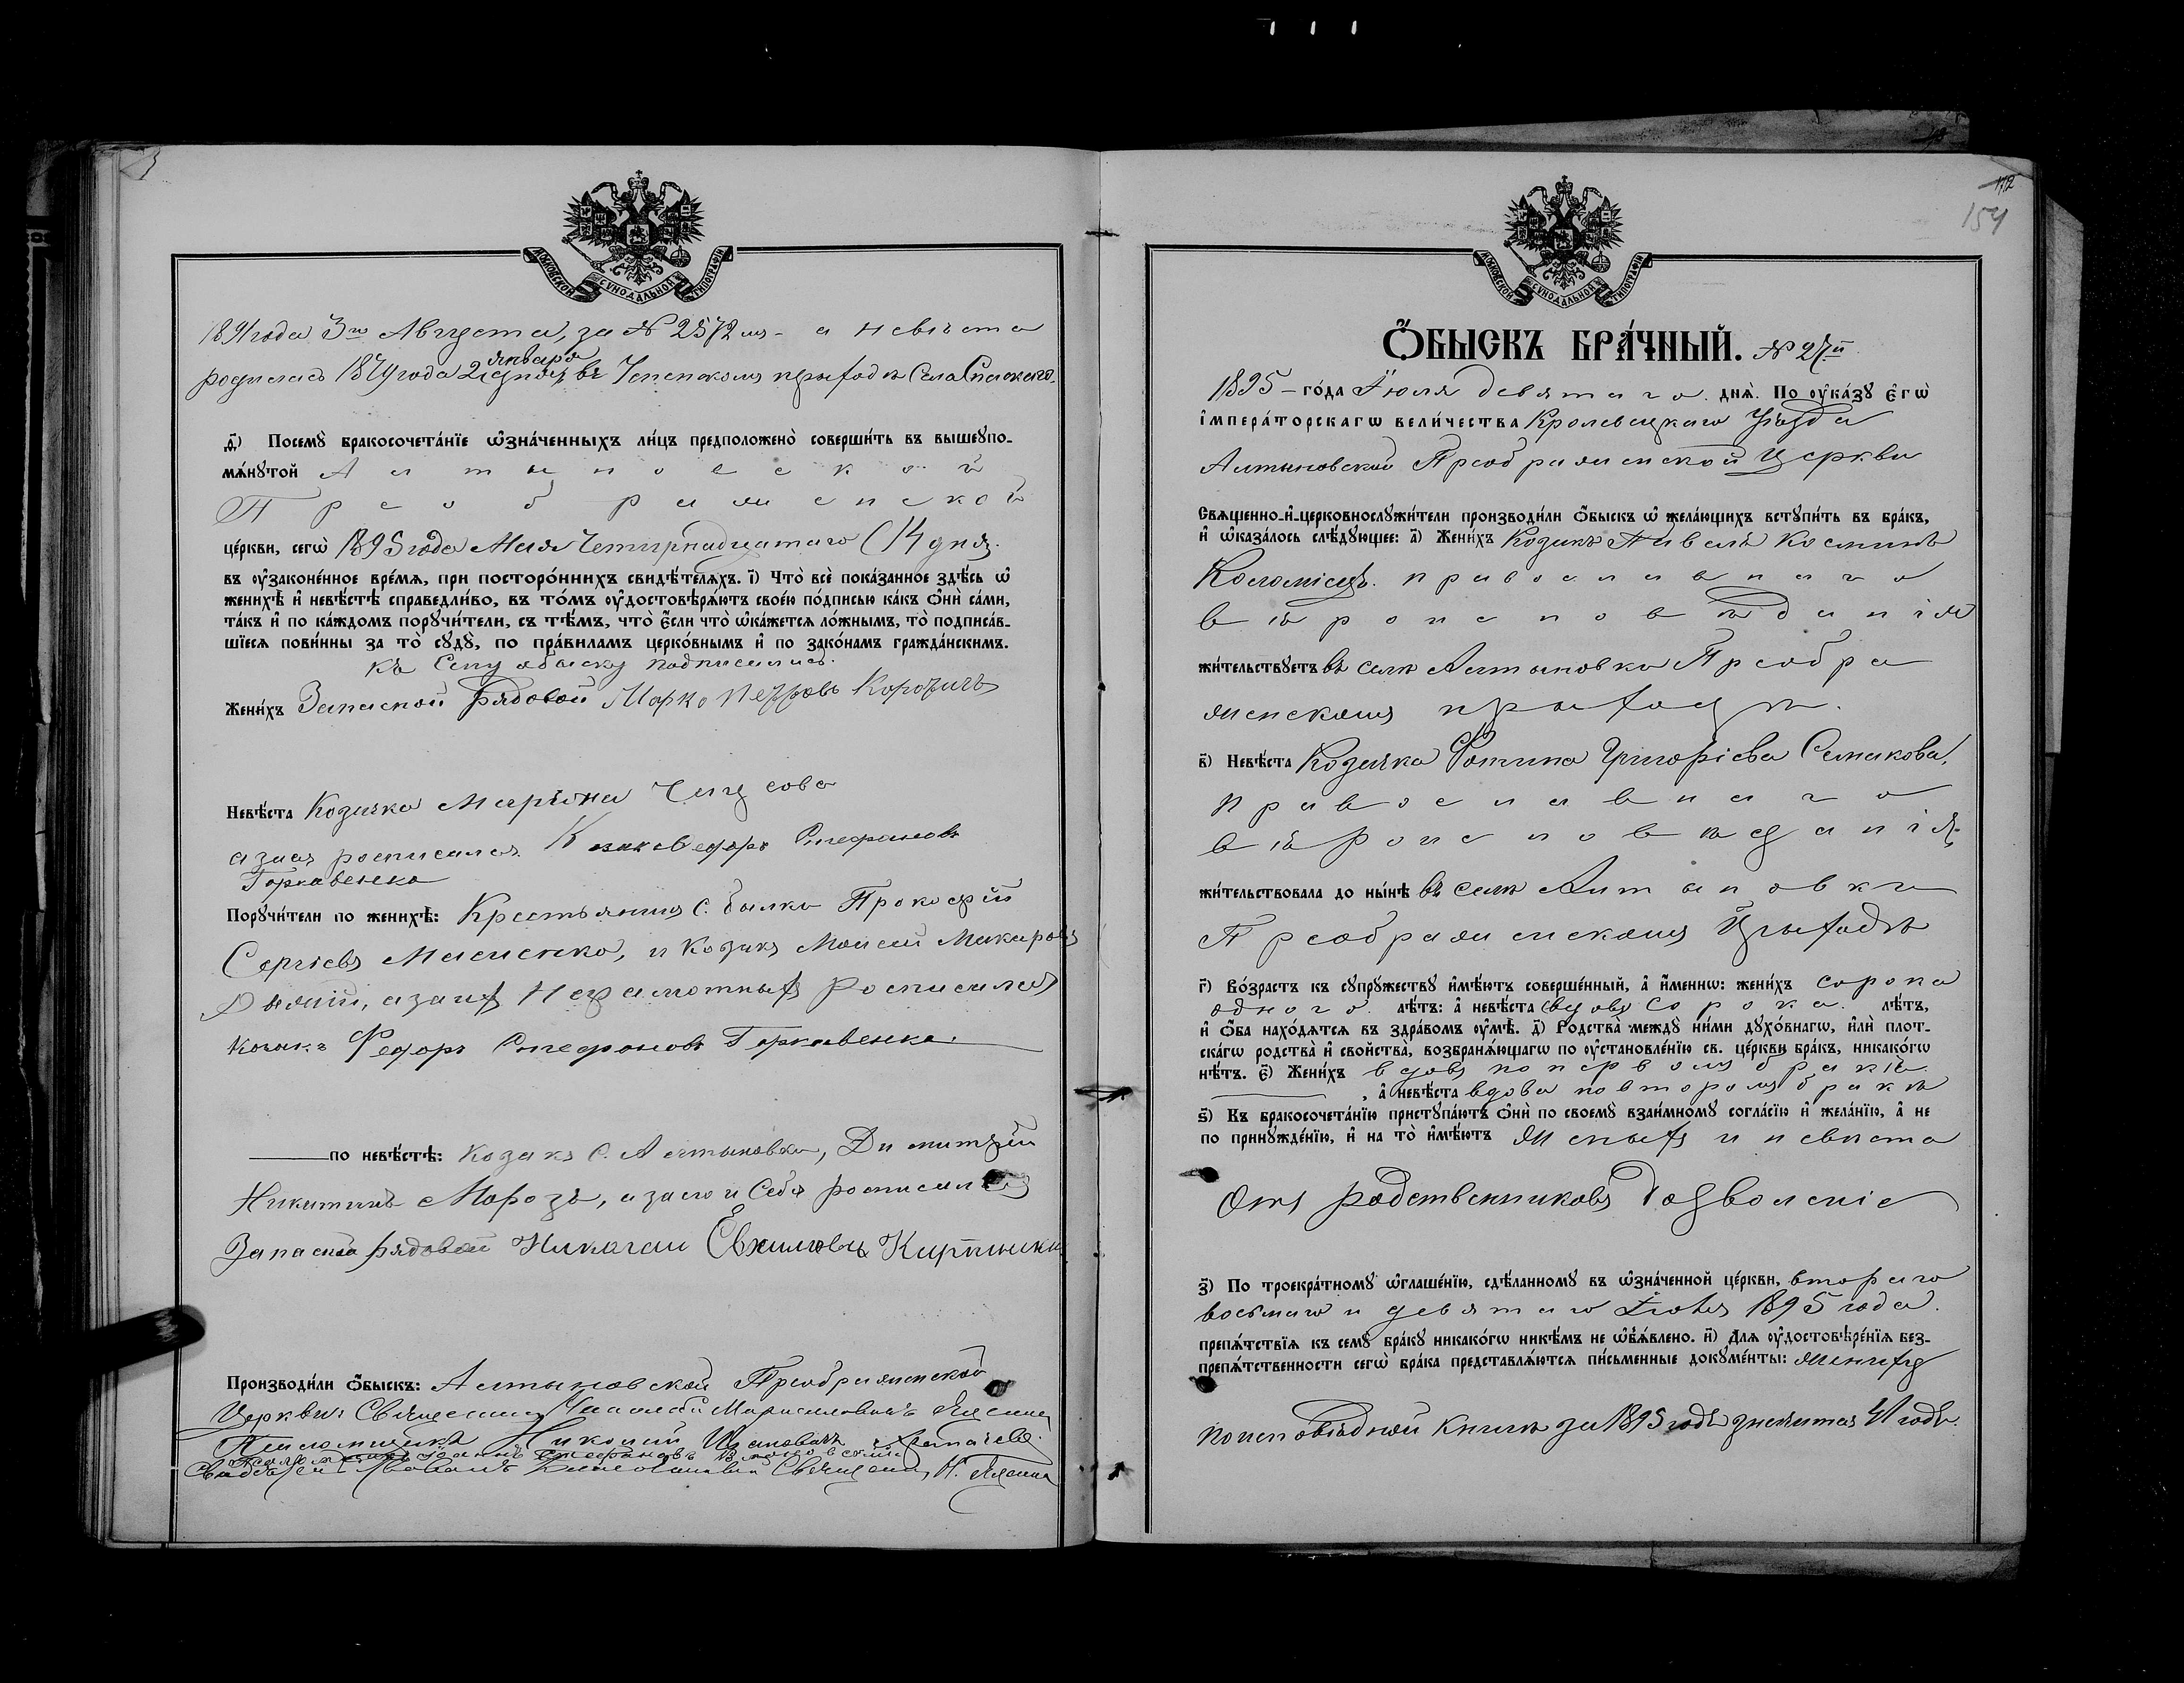 МОСКОВСКОЙ СѴНОДАЛЬНОЙ ТИПОГРАФІИ
1891 года 3го Августа, за № 2572 мъ - а невѣста
января
родилась года въ Успенскомъ приходѣ Села
д҃) Посемꙋ̀ бракосочета́нїе ѡ҆зна́ченныхъ ли́цъ предположено̀ соверши́ть въ вышеꙋпо-
мѧ́нꙋтой Алтыновской
Преображенской
це́ркви, сегѡ̀ 1895 года Мая Четырнадцатаго (14 дня.
въ ᲂу҆законе́нное вре́мѧ, при посторо́ннихъ свидѣ́телѧхъ. і҃) Что̀ всѐ пока́занное здѣ́сь ѡ҆
женихѣ̀ и҆ невѣ́стѣ справедли́во, въ то́мъ ᲂу҆достовѣрѧ́ютъ свое́ю по́дписью ка́къ ѻ҆нѝ са́ми,
та́къ и҆ по ка́ждомъ порꙋчи́тели, съ тѣ́мъ, что̀ є҆́сли что̀ ѡ҆ка́жетсѧ ло́жнымъ, то̀ подписа́в-
шїесѧ пови́нны за то̀ сꙋдꙋ̀, по пра́виламъ церко́внымъ и҆ по зако́намъ гражда́нскимъ.
Къ Сему обыску подписались.
Жени́хъ Запасной рядовой Марко Петровъ
Невѣ́ста Козачка
росписался Козакъ Федоръ Стефановъ
Горкавенко
Порꙋчи́тели по женихѣ̀: Крестьянинъ с. Прокофій
Сергіевъ и Козакъ Моисей Макаровъ
неграмотныхъ росписался
козакъ Федоръ Стефановъ Горкавенко.
по невѣ́стѣ: Козакъ с. Алтыновки, Димитрій
Никитинъ Морозъ, а за него и Себя росписался
Запасной рядовой Николай
Производи́ли ѻ҆́быскъ: Алтыновской Преображенской
Церкви Священникъ
Псаломщикъ Николай Ивановичъ
Священникъ
154
МОСКОВСКОЙ СѴНОДАЛЬНОЙ ТИПОГРАФІИ
Ѻ҆́БЫСКЪ БРА́ЧНЫЙ. № 27й
1895 - го́да Іюля девятаго днѧ̀. По ᲂу҆ка́зꙋ є҆гѡ̀
і҆мпера́торскагѡ вели́чества Кролевецкаго Уѣзда
Алтыновской Преображенской Церкви
Свѧще́нно-и҆-церковнослꙋжи́тели производи́ли ѻ҆́быскъ ѡ҆ жела́ющихъ встꙋпи́ть въ бра́къ,
и҆ ѡ҆каза́лось слѣ́дꙋющее: а҃) Жени́хъ Козакъ Павелъ Косминъ
православнаго
вѣроисповѣданія
жи́тельствꙋетъ въ селѣ Алтыновкѣ Преобра
женскомъ приходѣ.
в҃) Невѣ́ста Козачка Фотина Григоріева Семакова,
православнаго
вѣроисповѣданія
жи́тельствовала до ны́нѣ въ селѣ Алтыновкѣ
Преображенскомъ Приходѣ
г҃) Во́зрастъ къ сꙋпрꙋ́жествꙋ и҆мѣ́ютъ соверше́нный, а҆ и҆́меннѡ: жени́хъ сорока
одного лѣ́тъ: а҆ невѣ́ста (вдова) сорока. лѣ́тъ,
и҆ ѻ҆́ба нахо́дѧтсѧ въ здра́вомъ ᲂу҆мѣ̀. д҃) Родства̀ междꙋ̀ ни́ми дꙋхо́внагѡ, и҆лѝ плот-
ска́гѡ родства̀ и҆ свойства̀, возбранѧ́ющагѡ по ᲂу҆становле́нїю св. це́ркви бра́къ, никако́гѡ
нѣ́тъ. є҃) Жени́хъ вдовъ по первомъ бракѣ
, а҆ невѣ́ста вдова по второмъ бракѣ
ѕ҃) Къ бракосочета́нїю пристꙋпа́ютъ ѻ҆нѝ по своемꙋ̀ взаи́мномꙋ согла́сїю и҆ жела́нїю, а҆ не
по принꙋжде́нїю, и҆ на то̀ и҆мѣ́ютъ женихъ и невѣста
отъ родственниковъ дозволеніе
з҃) По троекра́тномꙋ ѡ҆глаше́нїю, сдѣ́ланномꙋ въ ѡ҆зна́ченной це́ркви, втораго
восьмаго и девятаго Іюля 1895 года.
препѧ́тствїѧ къ семꙋ̀ бра́кꙋ никако́гѡ никѣ́мъ не ѡ҆б̾ѧ́влено. и҃) Длѧ ᲂу҆достовѣре́нїѧ без-
препѧ́тственности сегѡ̀ бра́ка представлѧ́ютсѧ пи́сьменные докꙋме́нты: женихъ
по исповѣдной книгѣ за 1895 годъ значится 41 года.